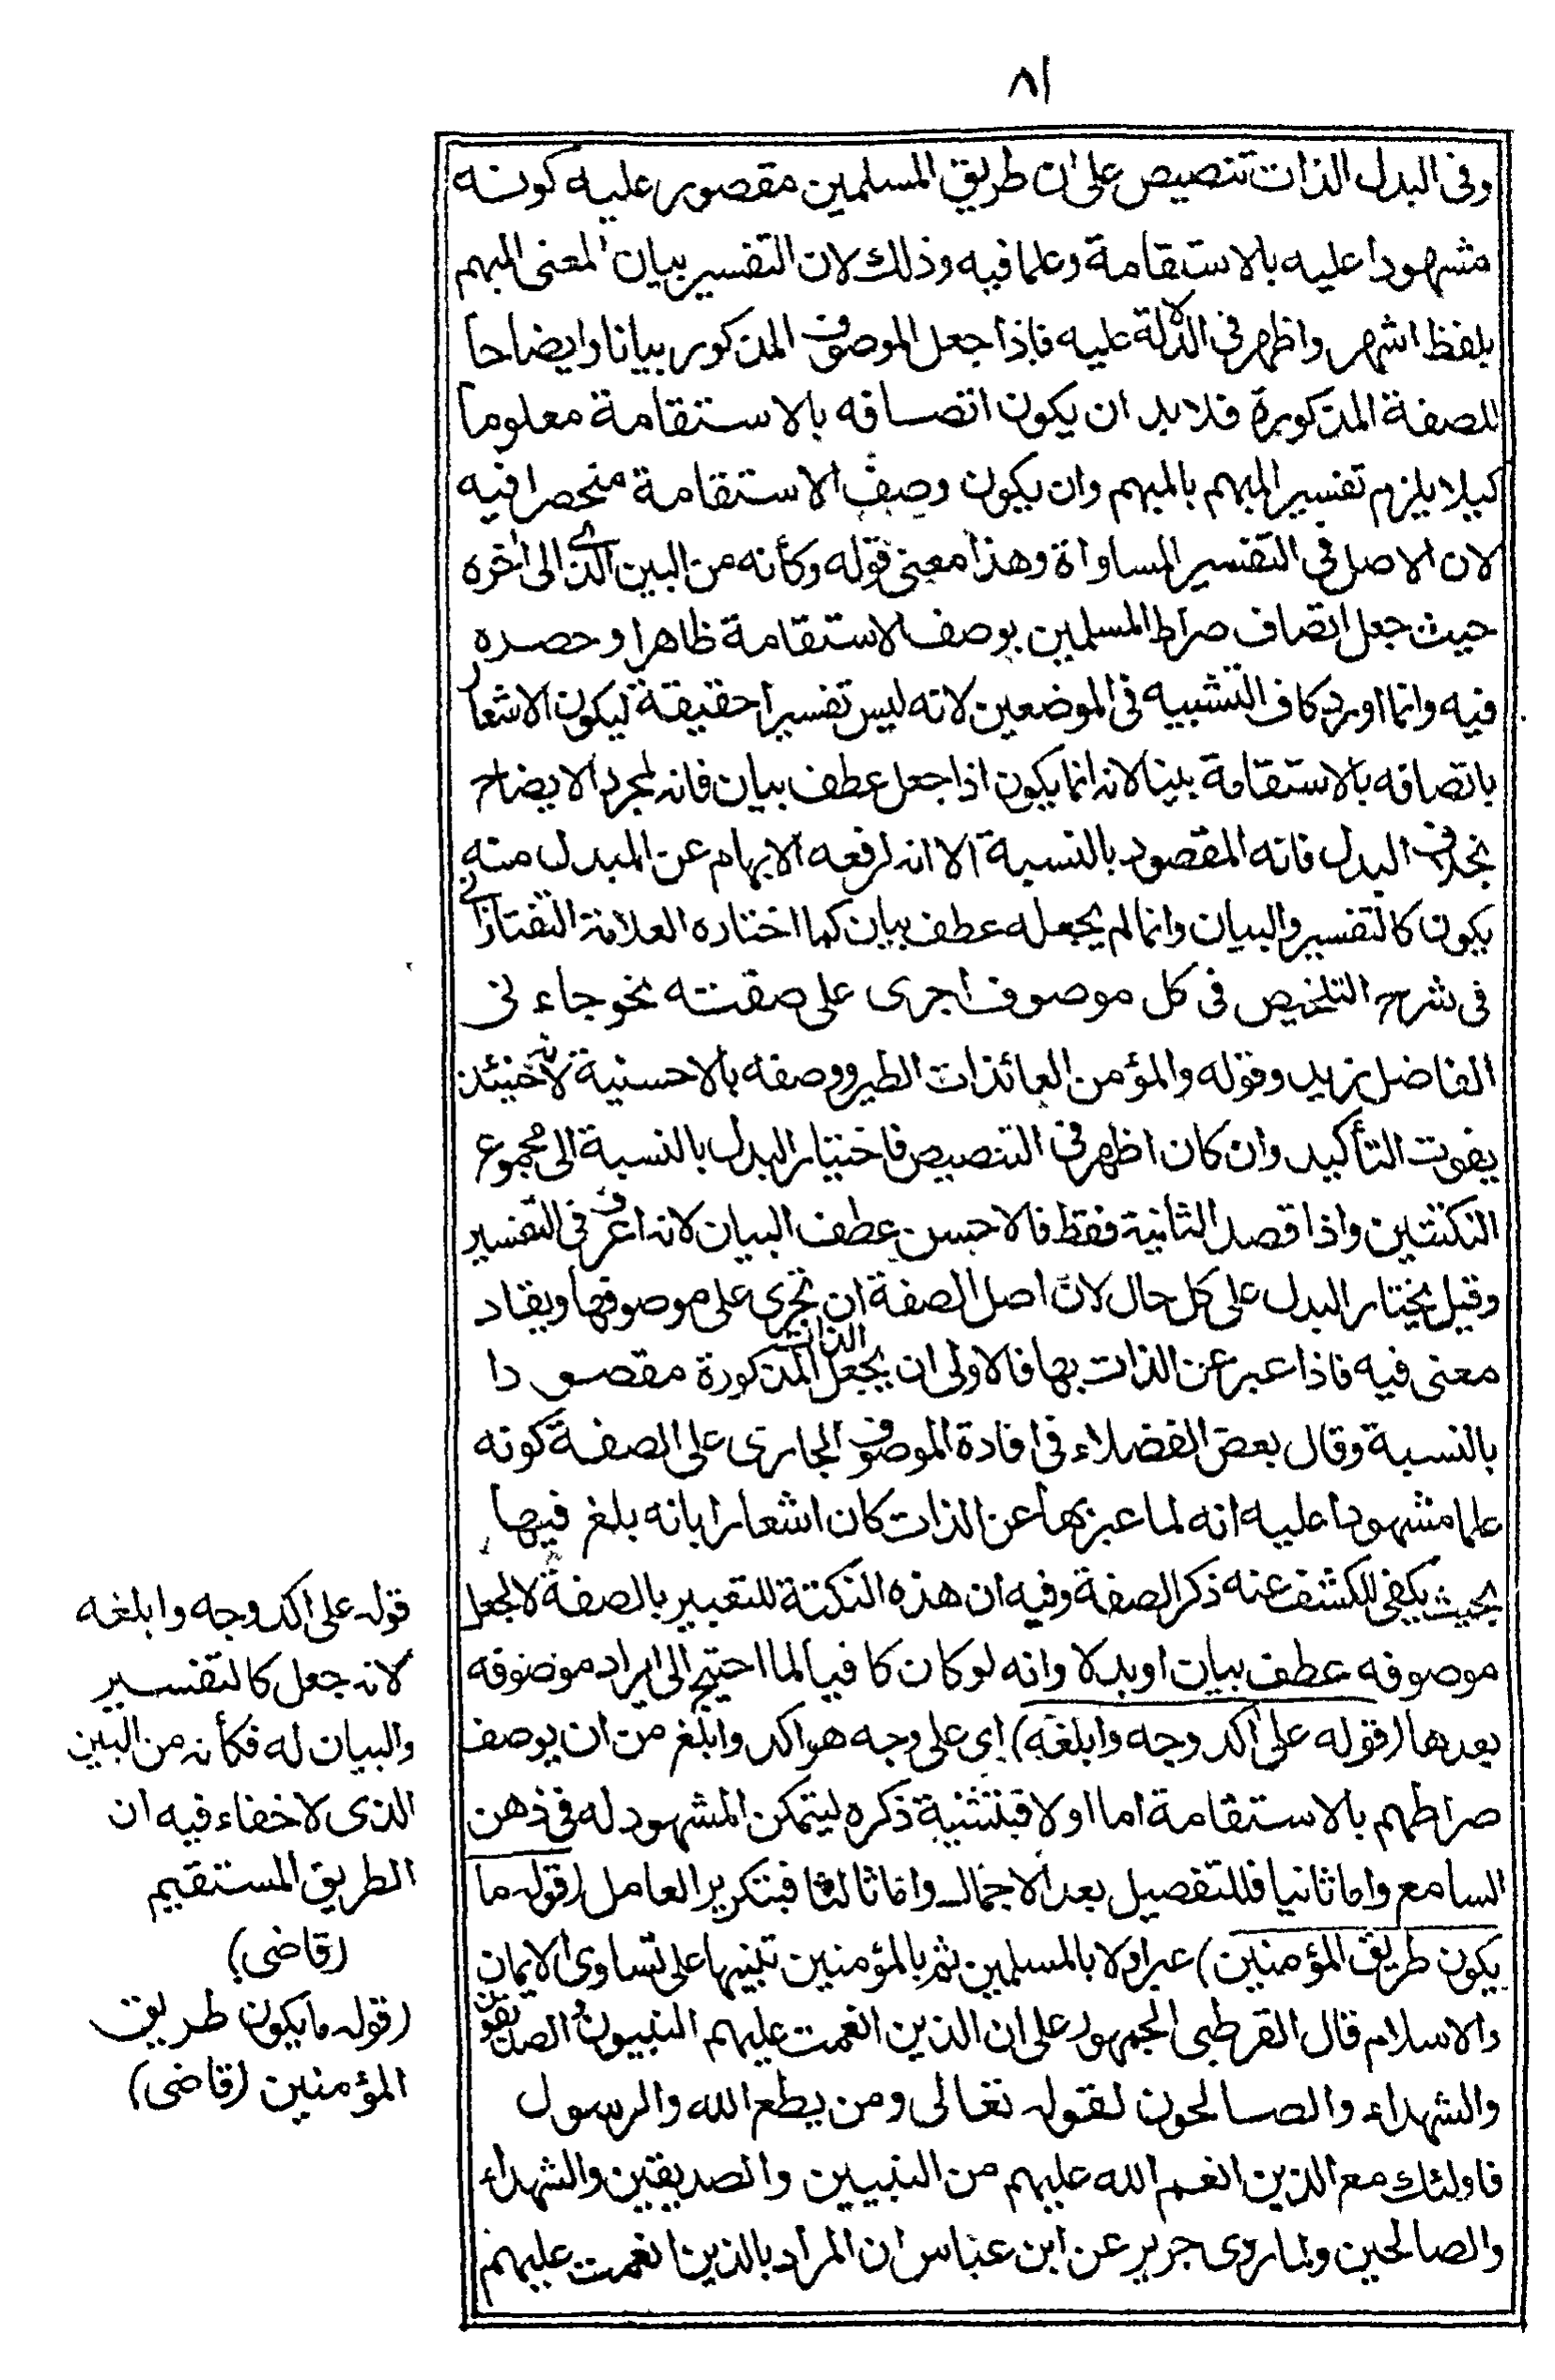 ٨١
وفى البدل الذات تنصيص على ان طريق المسلمين مقصور عليه كونه
مشهودا عليه بالاستقامة وعلما فيه وذلك لان التفسير بيان المعنى المبهم
بلفظ اشهر واظهر فى الدلالة عليه فاذا جعل الموصوف المذكور بيانا وايضاحا
للصفة المذكورة فلا بد ان يكون اتصافه بالاستقامة معلوما
كيلا يلزم تفسير المبهم بالمبهم وان يكون وصف الاستقامة منحصرا فيه
لان الاصل فى التفسير المساواة وهذا معنى قوله وكأنه من البين الذى الى اخره
حيث جعل اتصاف صراط المسلمين بوصف الاستقامة ظاهرا وحصره
فيه وانما اورد كاف التشبيه فى الموضعين لانه ليس تفسيرا حقيقة ليكون الاشعار
باتصافه بالاستقامة بينا لانه انما يكون اذا جعل عطف بيان فانه لمجرد الايضاح
بخلاف البدل فانه المقصود بالنسبة الا انه لرفعه الابهام عن المبدل منه
يكون كالتفسير والبيان وانما لم يجعله عطف بيان كما اختاره العلامة التفتازانى
فى شرح التلخيص فى كل موصوف اجرى على صفته نحو جاءنى
الفاضل زيد وقوله والمؤمن العائذات الطير ووصفه بالاحسنية لانه حينئذ
يفوت التأكيد وان كان اظهر فى التنصيص فاختيار البدل بالنسبة الى مجموع
النكتتين واذا قصد الثانية فقط فالاحسن عطف البيان لانه اعرف فى التفسير
وقيل يختار البدل على كل حال لان اصل الصفة ان تجرى على موصوفها ويفاد
معنى فيه فاذا عبر عن الذات بها فالاولى ان يجعل الذات المذكورة مقصودا
بالنسبة وقال بعض الفضلاء فى افادة الموصوف الجارى على الصفة كونه
علما مشهودا عليه انه لما عبر بها عن الذات كان اشعارا بانه بلغ فيها
بحيث يكفى للكشف عنه ذكر الصفة وفيه ان هذه النكتة للتعبير بالصفة لا لجعل
موصوفه عطف بيان او بدلا وانه لو كان كافيا لما احتيج الى ايراد موصوفه
بعدها (قوله على آكد وجه وابلغه) اى على وجه هو اكد وابلغ من ان يوصف
صراطهم بالاستقامة اما اولا فبتثنية ذكره ليتمكن المشهود له فى ذهن
السامع واما ثانيا فللتفصيل بعد الاجمال واما ثالثا فبتكرير العامل (قوله ما
يكون طريق المؤمنين) عبر اولا بالمسلمين ثم بالمؤمنين تنبيها على تساوى الايمان
والاسلام قال القرطبى الجمهور على ان الذين انعمت عليهم النبيون والصديقون
والشهداء والصالحون لقوله تعالى ومن يطع الله والرسول
فاولئك مع الذين انعم الله عليهم من النبيين والصديقين والشهداء
والصالحين ولما روى جرير عن ابن عباس ان المراد بالذين انعمت عليهم
قوله على اكد وجه وابلغه
لانه جعل كالتفسير
والبيان له فكأنه من البين
الذى لا خفاء فيه ان
الطريق المستقيم
(قاضى)
(قوله ما يكون طريق
المؤمنين (قاضى)